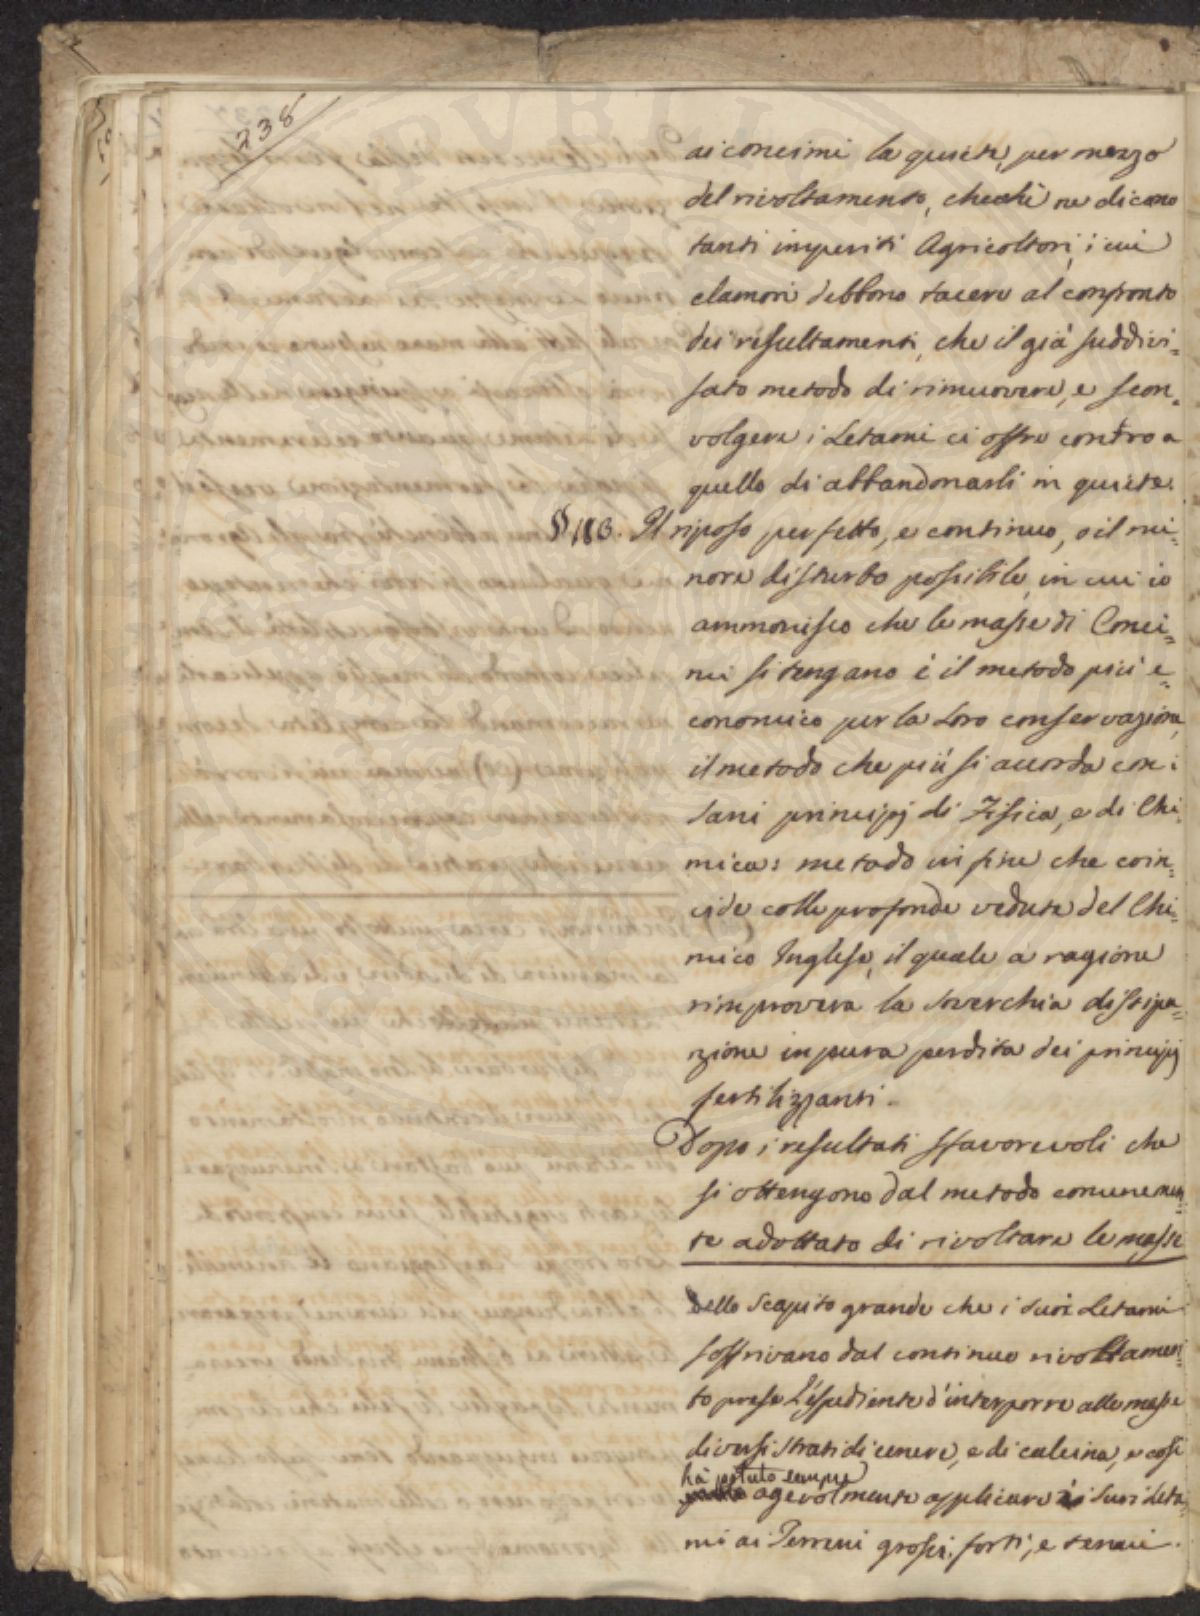 238
ai concimi la quiete, per mezzo
del rivoltamento, checchè ne dicano
tanti imperiti Agricoltori, i cui
clamori debbono tacere al confronto
dei resultamenti, che il già suddivi=
sato metodo di rimuovere, e scon=
volgere i Letami ci offre contro a
quello di abbandonarli in quiete.
§ 113. Il riposo perfetto, e continuo, o il mi=
nore disturbo possibile, in cui io
ammonisco che le masse di Conci=
mi si tengano è il metodo più e=
conomico per la loro conservazione,
il metodo che più si accorda con i
sani principj di Fisica, e di Chi=
mica: metodo in fine che coin=
cide colle profonde vedute del Chi=
mico Inglese, il quale a ragione
rimprovera la soverchia dissipa=
zione in pura perdita dei principj
fertilizzanti.
Dopo i resultati sfavorevoli che
si ottengono dal metodo comunemen=
te adottato di rivoltare le masse
dello scapito grande che i suoi Letami
soffrivano dal continuo rivoltamen=
to prese l'espediente d'interporre alle masse
diversi strati di cenere, e di calcina, e così
hà potuto sempre
agevolmente applicare i suoi Leta=
mi ai Terreni grossi, forti, e tenaci.